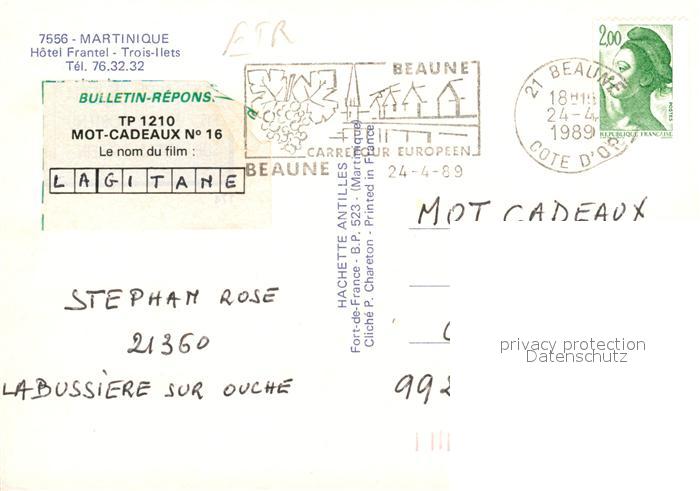 7556 - MARTINIQUE
Hôtel Frantel - Trois-Ilets
Tél. 76.32.32
ETR
BULLETIN-RÉPONS
TP 1210
MOT-CADEAUX Nº 16
Le nom du film :
LAGITANE
BEAUNE
CARREFOUR EUROPEEN
BEAUNE 24-4-89
21 BEAUNE
18H15
24-4
1989
COTE D'OR
2,00
POSTES
REPUBLIQUE FRANÇAISE
HACHETTE ANTILLES
Fort-de-France - B.P. 523 - (Martinique)
Cliché P. Chareton - Printed in France
MOT CADEAUX
992
STEPHAN ROSE
21360
LABUSSIÈRE SUR OUCHE
privacy protection
Datenschutz